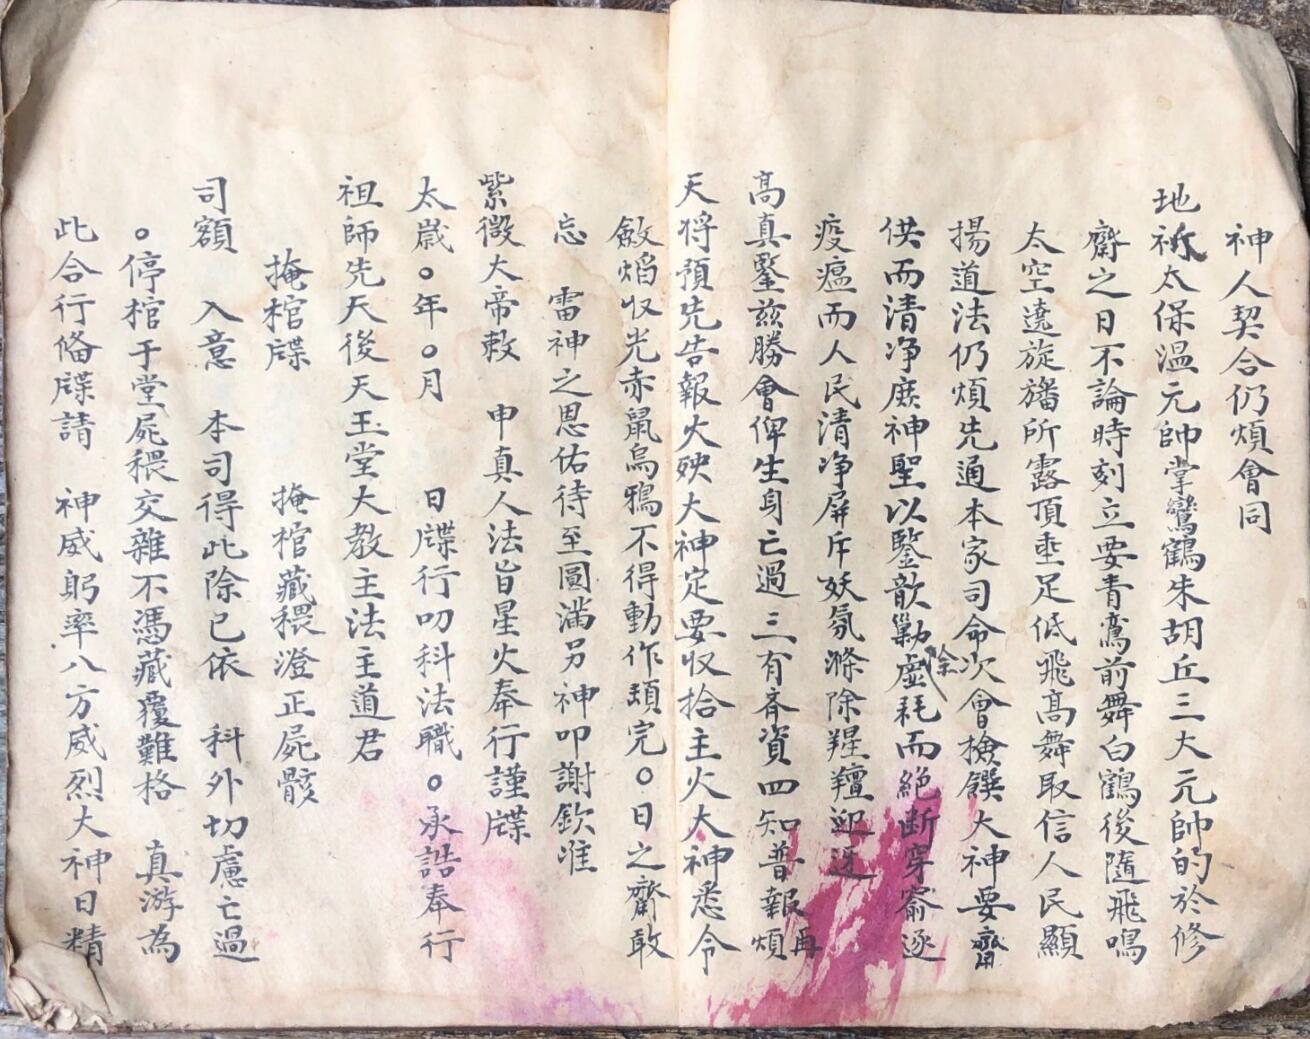 神人契合仍煩會同
地祇太保溫元帥掌鸞鶴朱胡丘三大元帥的於修
齋之日不論時刻立要青鸞前舞白鶴後隨飛鳴
太空遶旋旛所露頂垂足低飛高舞取信人民顯
揚道法仍煩先通本家司命次會檢饌大神要齋
供而清净庶神聖以鑒歆勦除虛耗而絕断穿窬逐
疫瘟而人民清净屏斥妖氛滌除羶迎迓
高真鑒兹勝會俾生身亡過三有斉資四知普報再煩
天将預先告報火殃大神定要収拾主火大神悉令
斂熖収光赤鼠烏鴉不得動作頑完〇日之齋敢
忘 雷神之恩佑待至圓滿另神叩謝欽准
紫微大帝敕 申真人法旨星火奉行謹牒
太歲〇年〇月 日牒行叨科法職〇承誥奉行
祖師先天後天玉堂大教主法主道君
掩棺牒 掩棺藏穢澄正屍骸
司額 入意 本司得此除已依 科外切慮亡過
〇停棺于堂屍穢交雜不馮藏覆難格 真游為
此合行俻牒請 神威躬率八方威烈大神日精